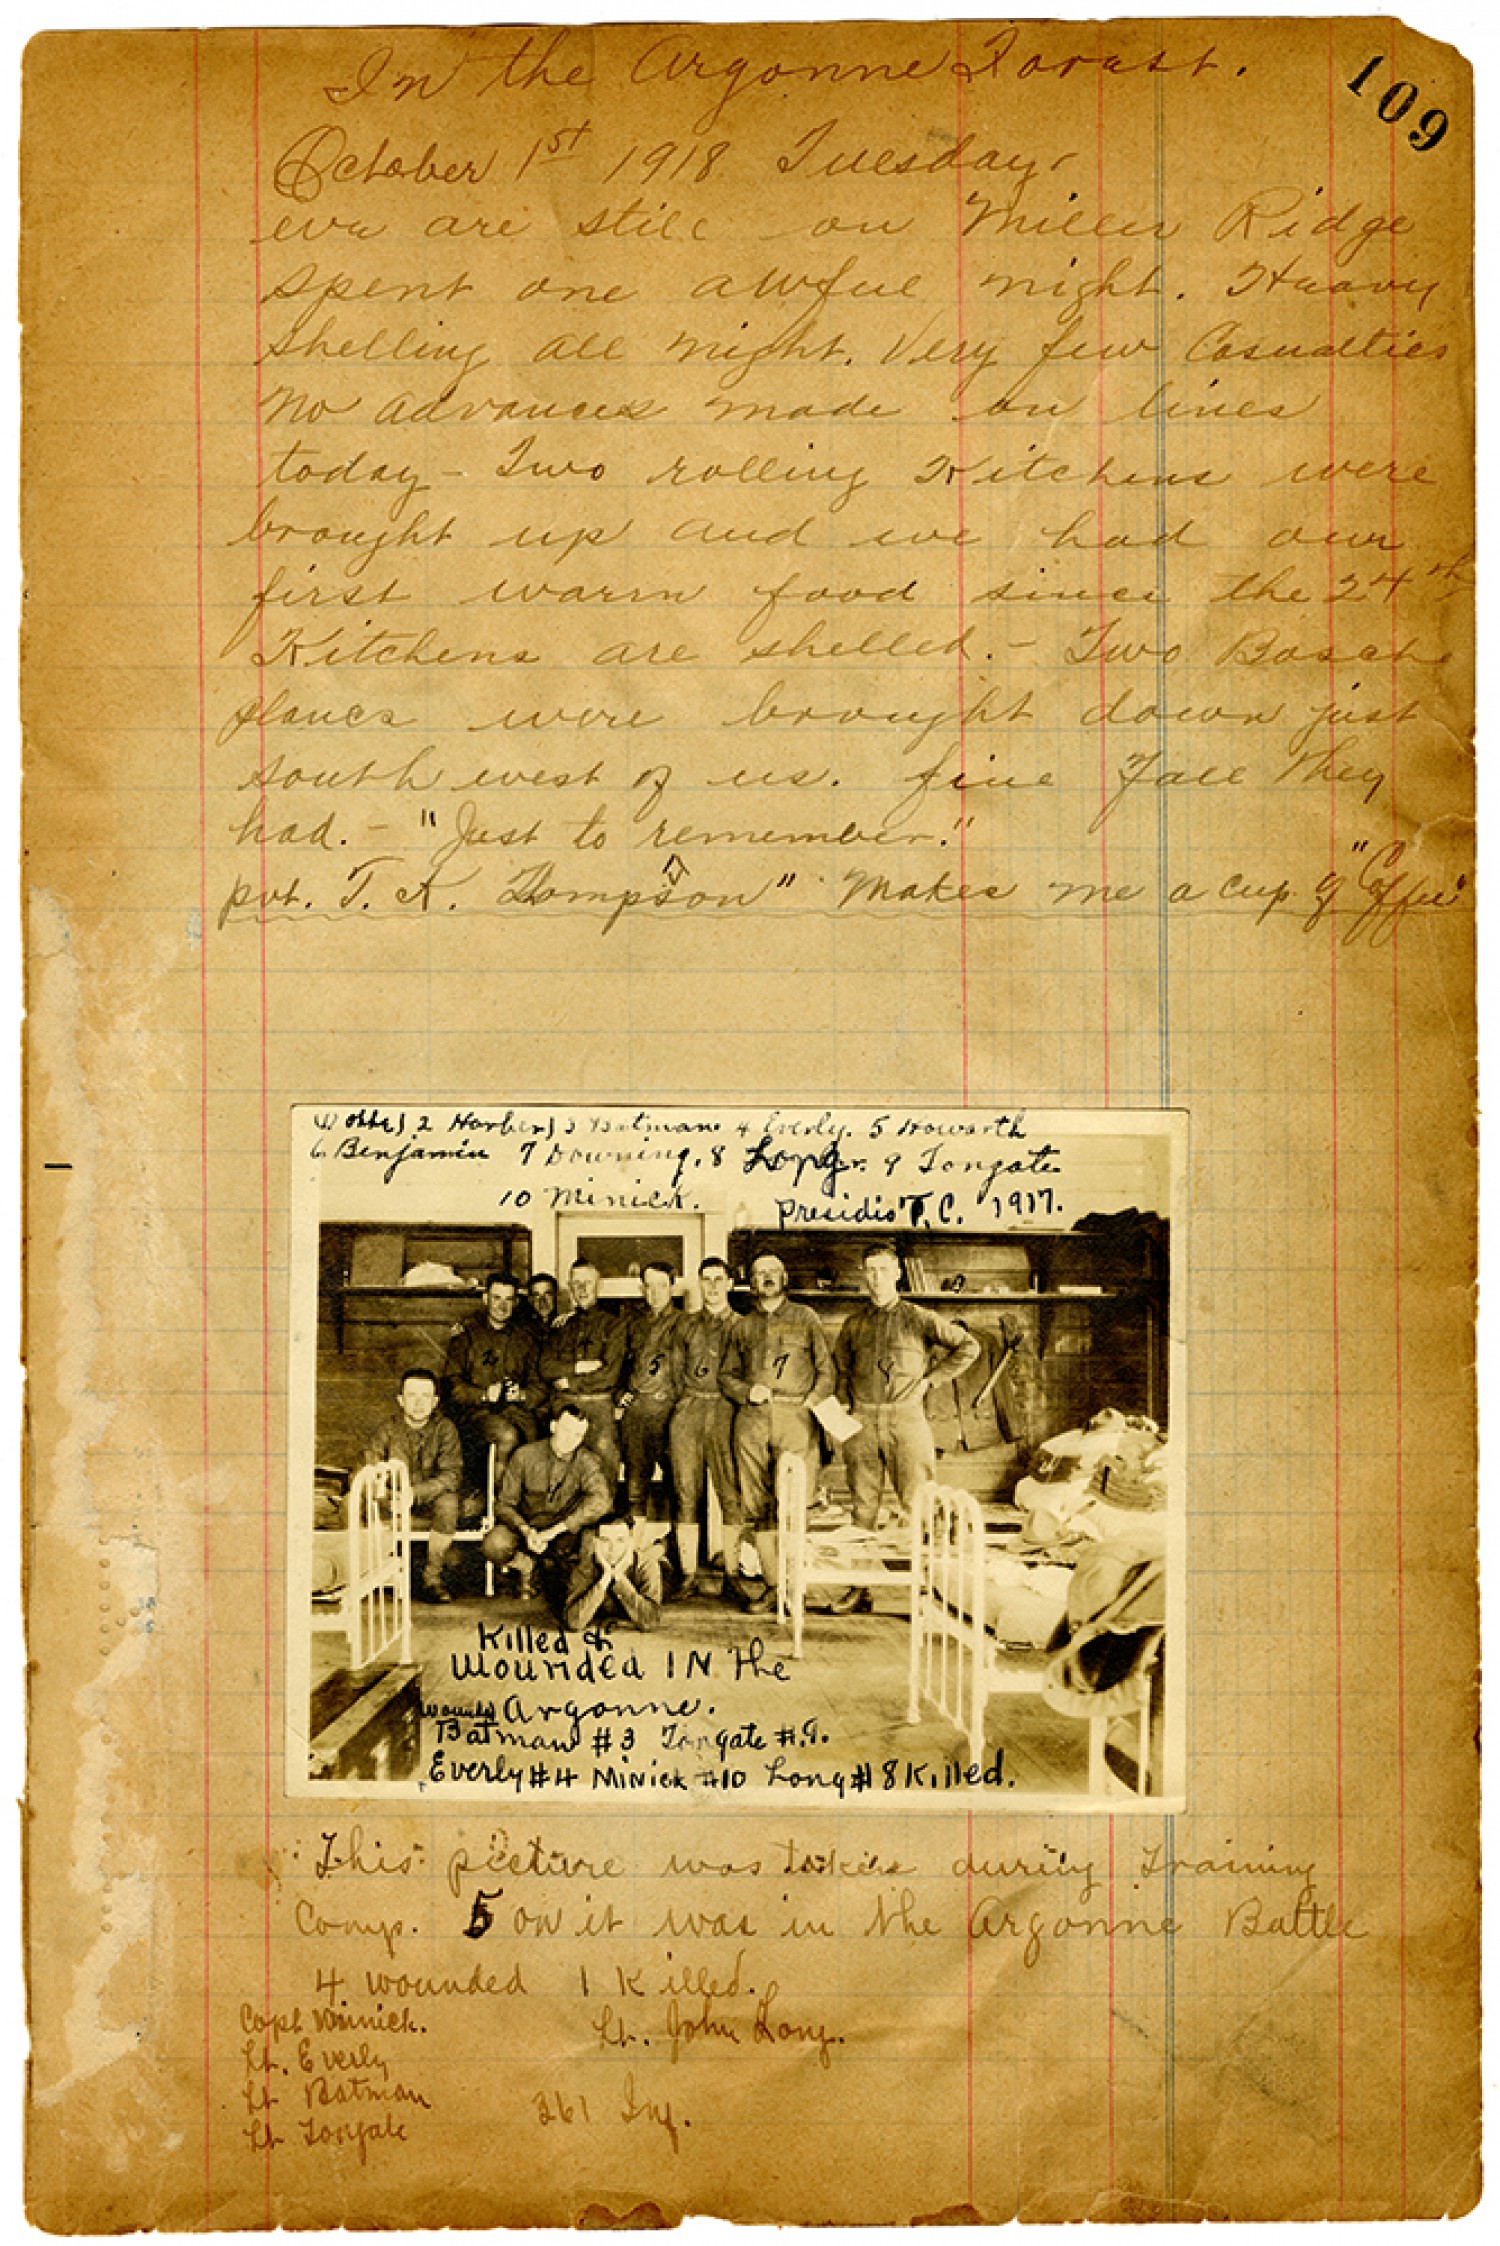 109
In the Argonne Forast.
October 1st 1918 Tuesday.
we are still on Miller Ridge
spent one awful night. Heavy
shelling all night. Very few Casualties
No advances made on lines
today - Two rolling Kitchens were
brought up and we had our
first warm food since the 24th
Kitchens are shelled. - Two Bosche
planes were brought down just
south west of us. fine Fall They
had. - "Just to remember."
pvt. T. A. Thompson" Makes me a cup of "Coffee"
2 Harber 3 Batman 4 Everly. 5 Howorth
6 Benjamin 7 Downing, 8 Long. 9 Tongate
10 Minick. Presidio T. C. 1917.
2 4 5 6 7 8
Killed &
Wounded IN the
wounded Argonne.
Batman #3 Tongate #9.
Everly #4 Minick #10 Long #8 Killed.
This picture was taken during Training
Camp. 5 on it was in the Argonne Battle
4 wounded 1 Killed.
Capt Minick. Lt. John Long.
Lt. Everly
Lt Batman 361 Inf.
Lt Tongate